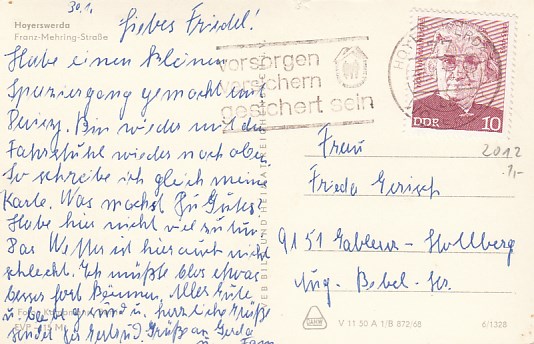 30.1.
Hoyerswerda
Franz-Mehring-Straße
Liebes Friedel!
Habe einen kleinen
Spaziergang gemacht mit
Bin wieder mit den
Fahrstuhl wieder nach oben
So schreibe ich gleich meine
Karte. Was machst Du Gutes?
Habe hier nicht viel zu tun.
Das Wetter ist hier auch nicht
schlecht. Ich müßte blos etwas
besser fort können. Alles Gute
u. bleibt gesund u. herzliche Grüße
sendet Gertrud. Grüße an Gerda
u. Fam
EVP –,15 M
VEB BILD UND HEIMAT REICHENBACH I. V.
vorsorgen
versichern
gesichert sein
DDR 10
Frau
Frieda Gerisch
9151 Gablenz-Stollberg
Aug.-Bebel-Str.
2012
1,-
V 11 50 A 1/B 872/68
6/1328